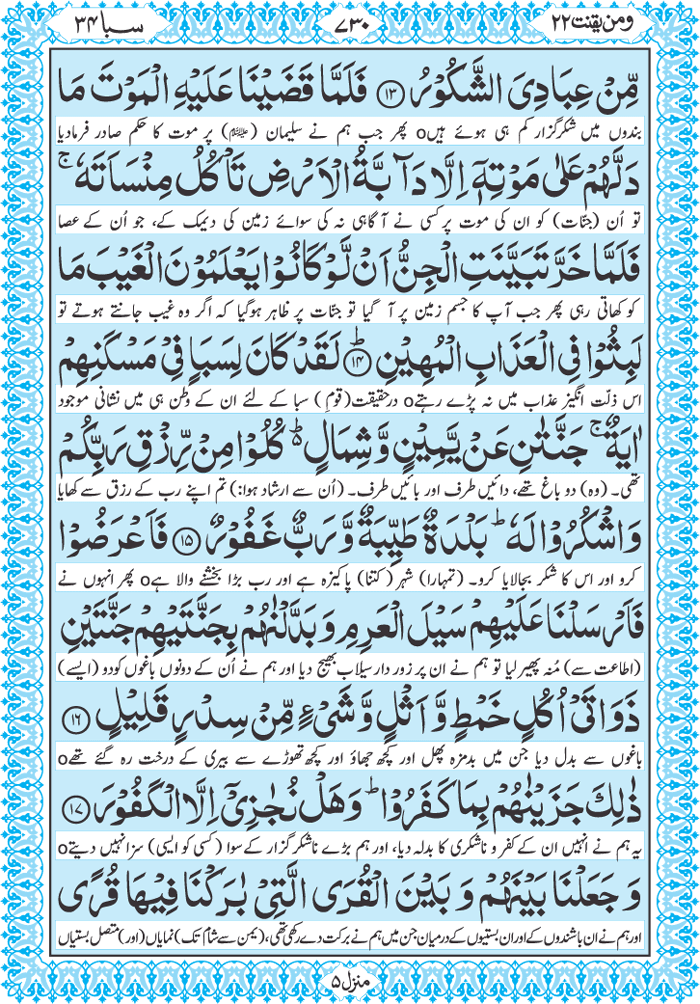 ومن یقنت ۲۲
۷۳۰
سبا ۳۴
مِّنْ عِبَادِیَ الشَّكُوْرُ ﴿۱۳﴾ فَلَمَّا قَضَیْنَا عَلَیْهِ الْمَوْتَ مَا
بندوں میں شکرگزار کم ہی ہوئے ہیںo پھر جب ہم نے سلیمان (ﷺ) پر موت کا حکم صادر فرمادیا
دَلَّهُمْ عَلٰی مَوْتِهٖۤ اِلَّا دَآبَّةُ الْاَرْضِ تَاْكُلُ مِنْسَاَتَهٗ ۚ
تو اُن (جنّات) کو ان کی موت پر کسی نے آگاہی نہ کی سوائے زمین کی دیمک کے، جو اُن کے عصا
فَلَمَّا خَرَّ تَبَیَّنَتِ الْجِنُّ اَنْ لَّوْ كَانُوْا یَعْلَمُوْنَ الْغَیْبَ مَا
کو کھاتی رہی پھر جب آپ کا جسم زمین پر آ گیا تو جنّات پر ظاہر ہوگیا کہ اگر وہ غیب جانتے ہوتے تو
لَبِثُوْا فِی الْعَذَابِ الْمُهِیْنِ ﴿ؕ۱۴﴾ لَقَدْ كَانَ لِسَبَاٍ فِیْ مَسْكَنِهِمْ
اس ذلّت انگیز عذاب میں نہ پڑے رہتےo درحقیقت (قومِ) سبا کے لئے ان کے وطن ہی میں نشانی موجود
اٰیَةٌ ۚ جَنَّتٰنِ عَنْ یَّمِیْنٍ وَّ شِمَالٍ ؕ۬ كُلُوْا مِنْ رِّزْقِ رَبِّكُمْ
تھی۔ (وہ) دو باغ تھے، دائیں طرف اور بائیں طرف۔ (اُن سے ارشاد ہوا:) تم اپنے رب کے رزق سے کھایا
وَ اشْكُرُوْا لَهٗ ؕ بَلْدَةٌ طَیِّبَةٌ وَّ رَبٌّ غَفُوْرٌ ﴿۱۵﴾ فَاَعْرَضُوْا
کرو اور اس کا شکر بجالایا کرو۔ (تمہارا) شہر (کتنا) پاکیزہ ہے اور رب بڑا بخشنے والا ہےo پھر انہوں نے
فَاَرْسَلْنَا عَلَیْهِمْ سَیْلَ الْعَرِمِ وَ بَدَّلْنٰهُمْ بِجَنَّتَیْهِمْ جَنَّتَیْنِ
(اطاعت سے) مُنہ پھیر لیا تو ہم نے ان پر زور دار سیلاب بھیج دیا اور ہم نے اُن کے دونوں باغوں کو دو (ایسے)
ذَوَاتَیْ اُكُلٍ خَمْطٍ وَّ اَثْلٍ وَّ شَیْءٍ مِّنْ سِدْرٍ قَلِیْلٍ ﴿۱۶﴾
باغوں سے بدل دیا جن میں بدمزہ پھل اور کچھ جھاؤ اور کچھ تھوڑے سے بیری کے درخت رہ گئے تھےo
ذٰلِكَ جَزَیْنٰهُمْ بِمَا كَفَرُوْا ؕ وَ هَلْ نُجٰزِیْۤ اِلَّا الْكَفُوْرَ ﴿۱۷﴾
یہ ہم نے انہیں ان کے کفر و ناشکری کا بدلہ دیا، اور ہم بڑے ناشکرگزار کے سوا (کسی کو ایسی) سزا نہیں دیتےo
وَ جَعَلْنَا بَیْنَهُمْ وَ بَیْنَ الْقُرَی الَّتِیْ بٰرَكْنَا فِیْهَا قُرًی
اور ہم نے ان باشندوں کے اور ان بستیوں کے درمیان جن میں ہم نے برکت دے رکھی تھی، (یمن سے شام تک) نمایاں (اور) متصل بستیاں
منزل ۵